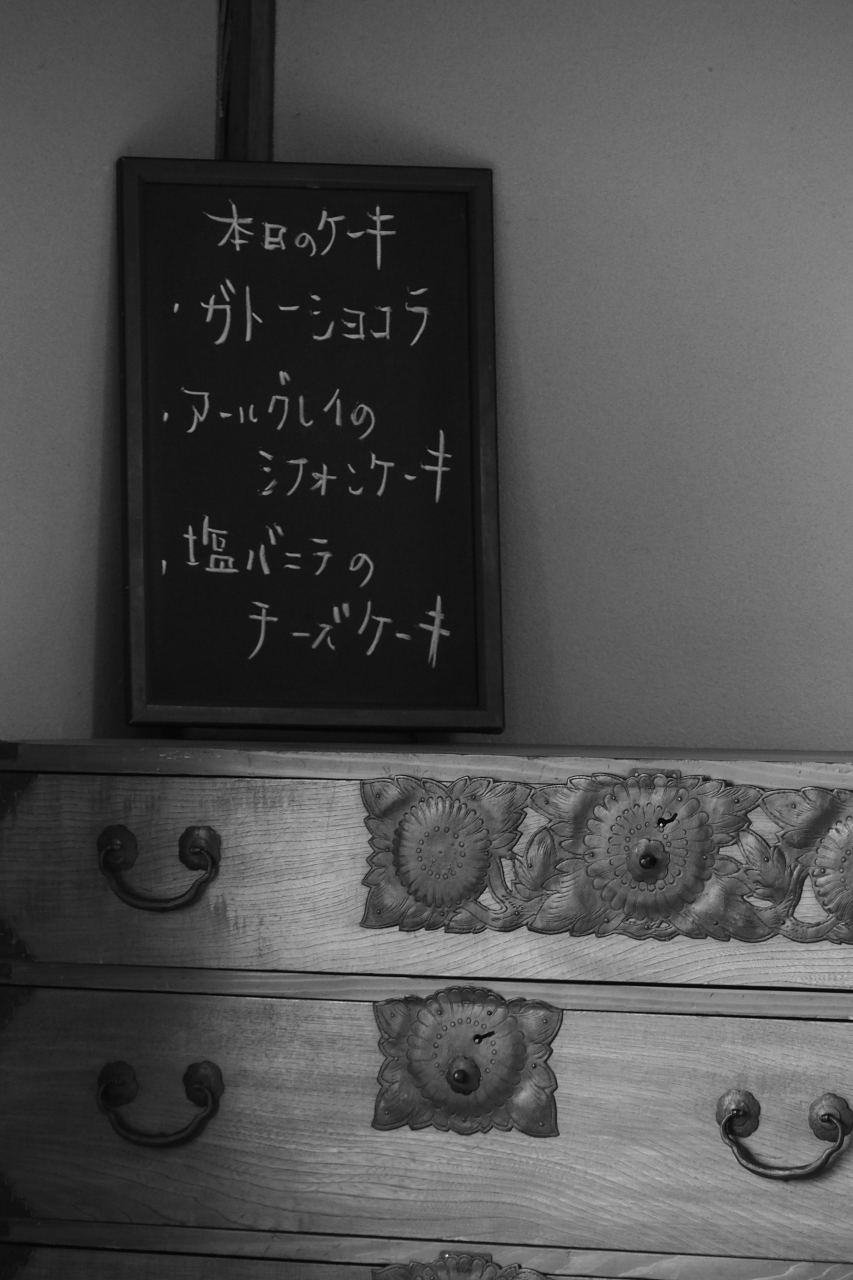 本日のケーキ
・ガトーショコラ
・アールグレイの
シフォンケーキ
・塩バニラの
チーズケーキ